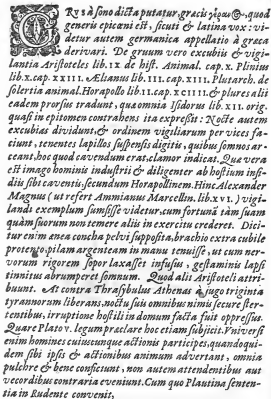 GRVS à sono dicta putatur, græcis γέρανος, quod
generis epicœni est, sicuti & latina vox: vi-
detur autem germanica appellatio à græca
derivari. De gruum vero excubiis & vigi-
lantia Aristoteles lib. IX de hist. Animal. cap. X. Plinius
lib. X. cap. XXIII. Ælianus lib. III. cap. XIII. Plutarch. de
solertia animal. Horapollo lib. II. cap. XCIIII, & plures alii
eadem prorsus tradunt, quæ omnia Isidorus lib. XII. orig.
quasi in epitomen contrahens ita expressit: Nocte autem
excubias dividunt, & ordinem vigiliarum per vices fa-
ciunt, tenentes lapillos suspensis digitis, quibus somnos ar-
ceant, hoc quod cavendum erat, clamor indicat. Quæ vera
est imago hominis industrii & diligenter ab hostium insi-
diis sibi caventis, secundum Horapollinem. Hinc Alexander
Magnus (ut refert Ammianus Marcellin. lib. XVI.) vigi-
landi exemplum sumsisse videtur, cum fortunā tàm suam
quàm suorum non temere aliis in exercitu crederet. Dici-
tur enim ænea concha pelvi supposita, brachio extra cubile
protento, pilam argenteam in manu tenuisse, ut cum ner-
vorum rigorem sopor laxasset infusus, gestaminis lapsi
tinnitus abrumperet somnum. Quod alii Aristoteli attri-
buunt. At contra Thrasybulus Athenas à jugo triginta
tyrannorum liberans, noctu suis omnibus nimis securè ster-
tentibus, irruptione hostili in domum facta fuit oppressus.
Quare Plato V. legum præclare hoc etiam subjicit. Vniversi
enim homines cuiuscunque actionis participes, quandoqui-
dem sibi ipsis & actionibus animum advertant, omnia
pulchre & bene conficiunt, non autem attendentibus aut
vecordibus contraria eveniunt. Cum quo Plautina senten-
tia in Rudente convenit,